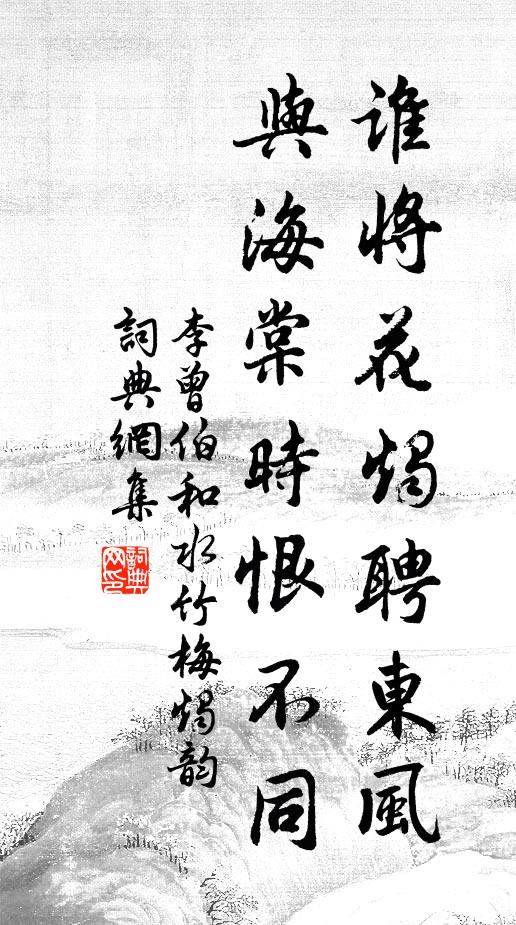 誰將花燭聘東風
與海棠時恨不同
李曾伯和水竹梅燭韵
詞典網集
詞典
网印